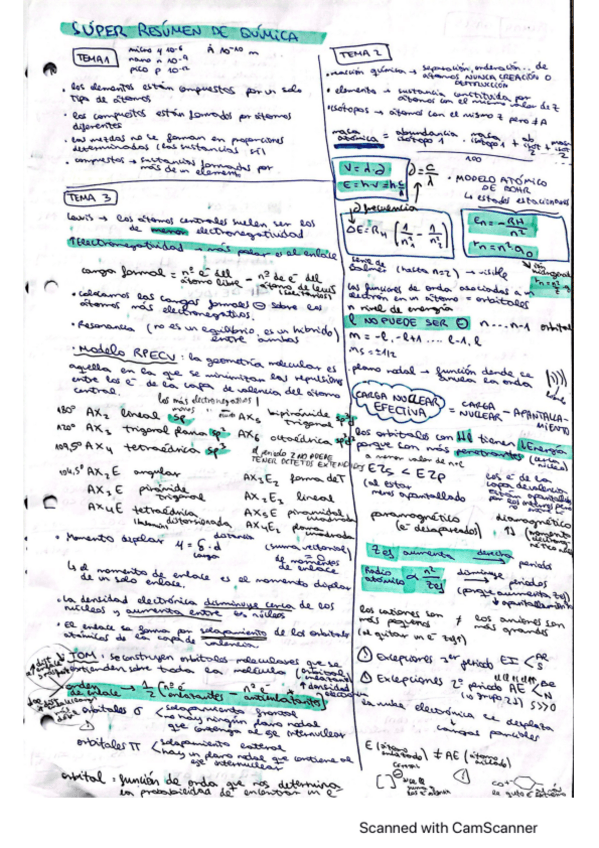 SÚPER RESÚMEN DE QUÍMICA
TEMA 1
micro μ 10⁻⁶ Å 10⁻¹⁰ m
nano n 10⁻⁹
pico p 10⁻¹²
· los elementos están compuestos por un solo
tipo de átomos
· los compuestos están formados por átomos
diferentes
· las mezclas no se forman en proporciones
determinadas (las sustancias sí)
· compuestos → sustancias formadas por
más de un elemento
TEMA 2
· reacción química → separación, ordenación... de
átomos NUNCA CREACIÓN O
DESTRUCCIÓN
· elemento → sustancia constituida por
átomos con el mismo valor de Z
· isótopos → átomos con el mismo Z pero ≠ A
masa atómica = abundancia isótopo 1 · masa isótopo 1 +
100
E = hν = h c/λ
· MODELO ATÓMICO
DE BOHR
↳ estados estacionarios
frecuencia
ΔE = RH (1/n²i − 1/n²f)
En = −RH/n²
rn = n² a₀
serie de Balmer (hasta n=2) → visible
las funciones de onda asociadas a un
electrón en un átomo = orbitales
n nivel de energía
l NO PUEDE SER ⊖ n...n-1 orbital
m = -l, -l+1 .... l-1, l
ms = ±1/2
· plano nodal → función donde se
anula la onda
CARGA NUCLEAR EFECTIVA = CARGA NUCLEAR − APANTALLAMIENTO
los orbitales con ↓l tienen ↓Energía
porque son más penetrantes
a menor valor de n+l
E2s < E2p
(al estar
menos apantallado
paramagnético diamagnético
(e⁻ desapareados) ↑↓
Zef aumenta → derecha periodo
Radio atómico ∝ n²/Zef disminuye → periodos
(porque aumenta Zef)
↓ apantallamiento
los cationes son ≠ los aniones son
más pequeños más grandes
(al quitar un e⁻ Zef↑)
Excepciones 3er periodo EI
Excepciones 2º periodo AE
la nube electrónica se desplaza
↳ cargas parciales
TEMA 3
Lewis → los átomos centrales suelen ser los
de menor electronegatividad
↑Electronegatividad → más polar es el enlace
carga formal = nº e⁻ del átomo libre − nº de e⁻ del átomo de Lewis
(solitarios)
· Colocamos las cargas formales ⊖ sobre los
átomos más electronegativos.
· Resonancia (no es un equilibrio, es un híbrido)
entre ambas
· Modelo RPECV: la geometría molecular es
aquella en la que se minimizan las repulsiones
entre los e⁻ de la capa de valencia del átomo
central.
180° AX₂ lineal sp AX₅ bipirámide trigonal sp³d
120° AX₃ trigonal plana sp² AX₆ octaédrica sp³d²
109,5° AX₄ tetraédrica sp³
el periodo 2 NO PUEDE
TENER OCTETOS EXTENDIDOS
104,5° AX₂E angular AX₃E₂ forma de T
AX₃E pirámide trigonal AX₂E₃ lineal
AX₄E tetraédrica distorsionada AX₅E piramidal cuadrada
AX₄E₂ plana cuadrada
· Momento dipolar μ = δ · d
distancia
carga
(suma vectorial)
de momentos
de enlace.
↳ el momento de enlace es el momento dipolar
de un solo enlace.
· La densidad electrónica disminuye cerca de los
núcleos y aumenta entre los núcleos
· El enlace se forma por solapamiento de los orbitales
atómicos de la capa de valencia
TOM: se construyen orbitales moleculares que se
extienden sobre toda la molécula
orden de enlace → 1/2 (nº e⁻ enlazantes − nº e⁻ antienlazantes)
orbitales σ < solapamiento frontal
no hay ningún plano nodal
que contenga al eje internuclear
orbitales Π < solapamiento lateral
hay un plano nodal que contiene al
eje internuclear
orbital = función de onda que nos determina
la probabilidad de encontrar un e⁻
Scanned with CamScanner